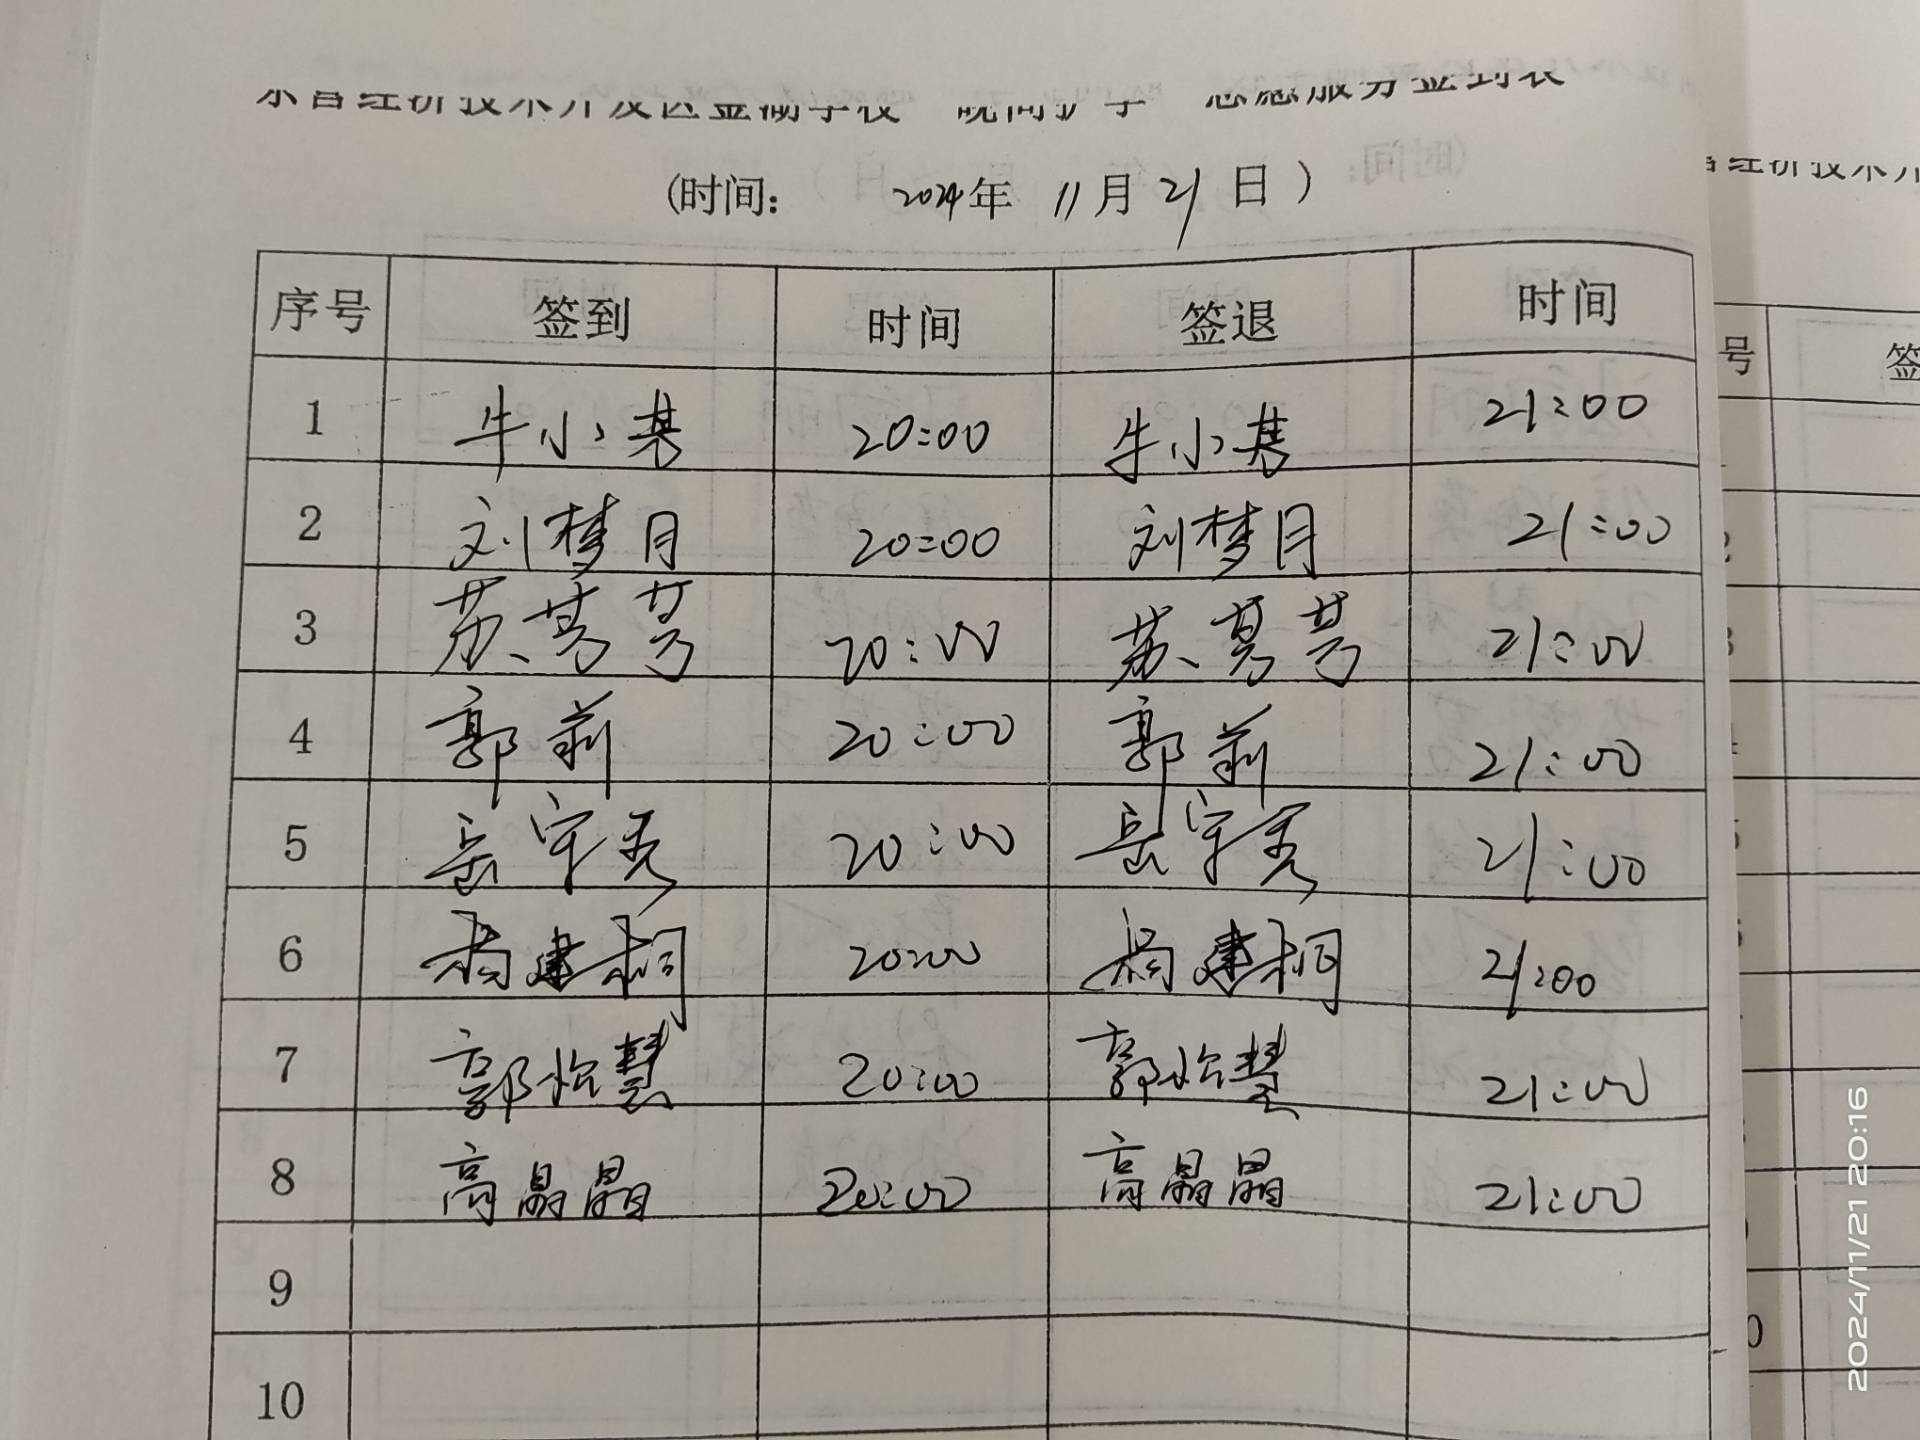 东营经济技术开发区金湖学校 晚间护学 志愿服务签到表
(时间： 2024年 11月21日)
序号 签到 时间 签退 时间
1 牛小 20:00 牛小 21:00
2 刘梦月 20:00 刘梦月 21:00
3 苏 20:00 苏 21:00
4 郭莉 20:00 郭莉 21:00
5 岳 20:00 岳 21:00
6 杨建桐 20:00 杨建桐 21:00
7 郭怡慧 20:00 郭怡慧 21:00
8 高晶晶 20:00 高晶晶 21:00
9
10
营经济技术开
号 签
2024/11/21 20:16